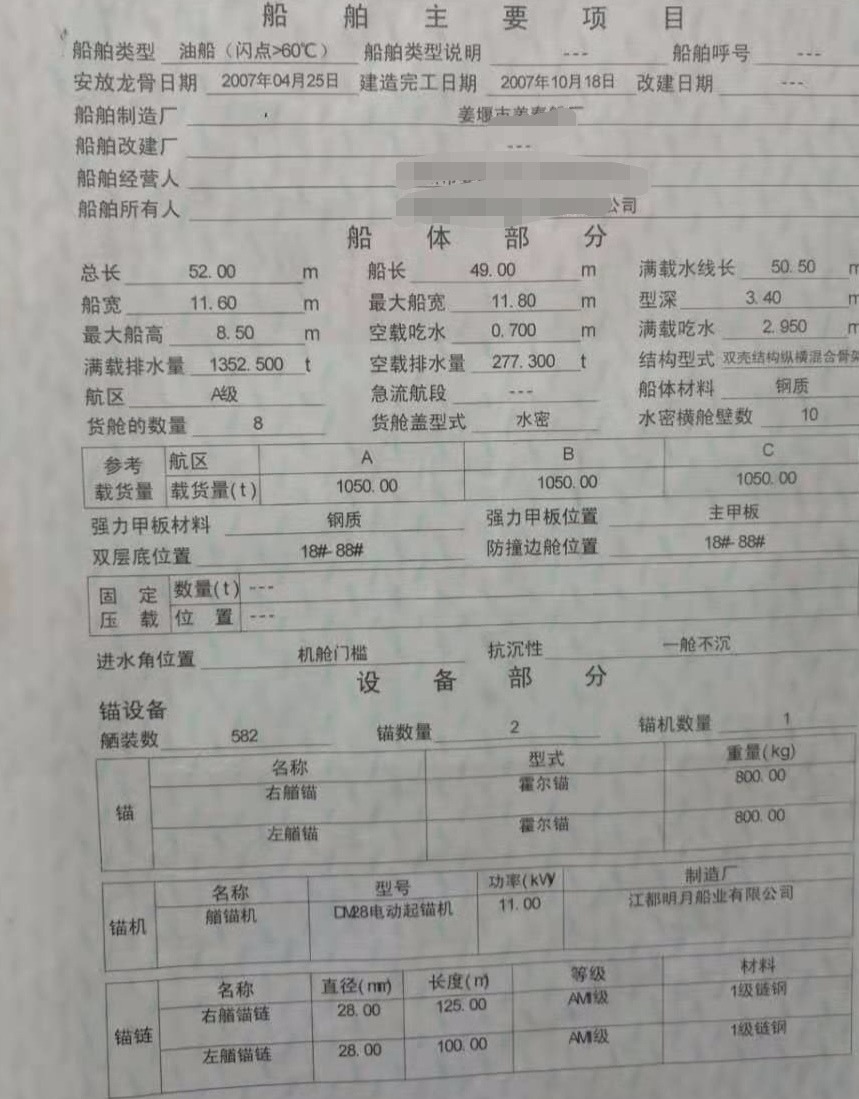 船舶主要项目
船舶类型 油船（闪点>60℃） 船舶类型说明 --- 船舶呼号 ---
安放龙骨日期 2007年04月25日 建造完工日期 2007年10月18日 改建日期 ---
船舶制造厂 姜堰市
船舶改建厂 ---
船舶经营人
船舶所有人 公司
船体部分
总长 52.00 m 船长 49.00 m 满载水线长 50.50 m
船宽 11.60 m 最大船宽 11.80 m 型深 3.40 m
最大船高 8.50 m 空载吃水 0.700 m 满载吃水 2.950 m
满载排水量 1352.500 t 空载排水量 277.300 t 结构型式 双壳结构纵横混合骨架
航区 A级 急流航段 --- 船体材料 钢质
货舱的数量 8 货舱盖型式 水密 水密横舱壁数 10
参考载货量 航区 A B C
载货量(t) 1050.00 1050.00 1050.00
强力甲板材料 钢质 强力甲板位置 主甲板
双层底位置 18#-88# 防撞边舱位置 18#-88#
固定压载 数量(t) ---
位置 ---
进水角位置 机舱门槛 抗沉性 一舱不沉
设备部分
锚设备
舾装数 582 锚数量 2 锚机数量 1
锚 名称 型式 重量(kg)
右艏锚 霍尔锚 800.00
左艏锚 霍尔锚 800.00
锚机 名称 型号 功率(kW) 制造厂
艏锚机 DM28电动起锚机 11.00 江都明月船业有限公司
锚链 名称 直径(mm) 长度(m) 等级 材料
右艏锚链 28.00 125.00 AM1级 1级链钢
左艏锚链 28.00 100.00 AM1级 1级链钢